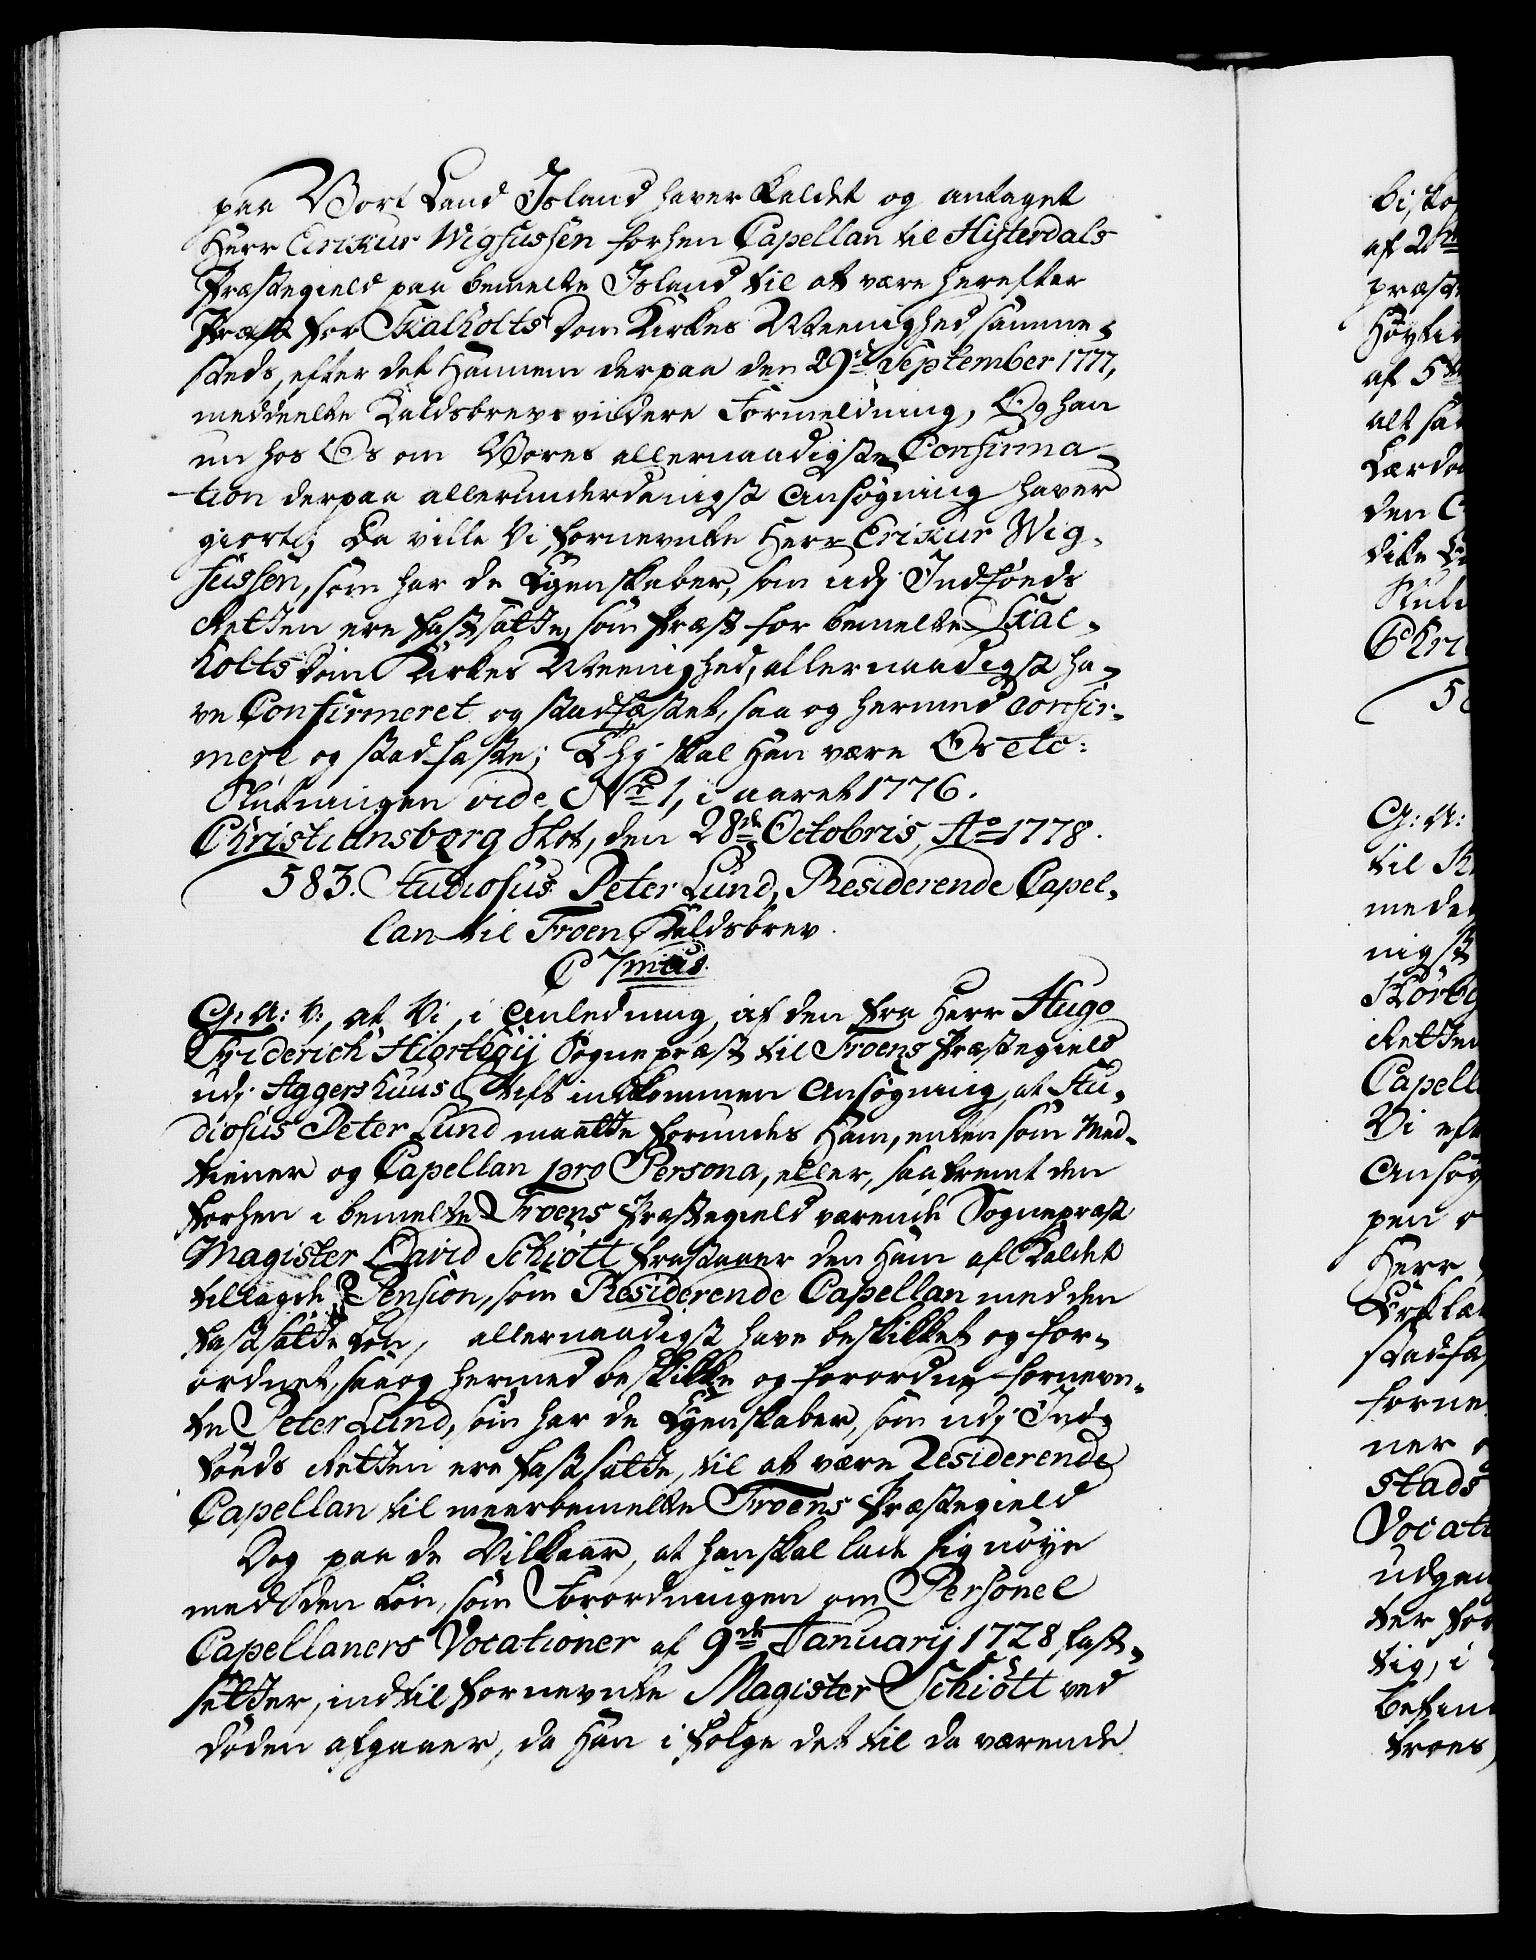 paa Vort Land Island haver kaldet og antaget
Herr Erixur Wigfussen forhen Capellan til Hÿterdals
Præstegield paa bemelte Island til at være herefter
Præst for Skalholts Dom Kirkes Meenighed samme-
steds, efter det hannem derpaa den 29de September 1777,
meddeelte Kaldsbrevs videre Formeldning, Og han
nu hos Os om Vores allernaadigste Confirma-
tion derpaa allerunderdanigst Ansøgning haver
giort; Da ville Vi fornevnte Herr Erixur Wig-
fussen, som har de Egenskaber, som udj Indføeds
Retten ere fastsatte, som Præst for bemelte Skal-
holts Dom Kirkes Meenighed, allernaadigst ha-
ve Confirmeret og stadfæstet, saa og hermed confir-
mere og stadfæste; Thj skal han være Os etc:
Slutningen vide No 1, i aaret 1776.
Christiansborg Slot, den 28de Octobris, Ao 1778.
583. Studiosus Peter Lund, Residerende Capel-
lan til Froen Kaldsbrev.
C 7mus.
G: A: V:, at Vi, i Anledning, af den fra Herr Hugo
Friderich Hiorthøÿ Sognepræst til Froens Præstegield
udj Aggershuus Stift indkommen Ansøgning, at Stu-
diosus Peter Lund maatte forundes ham, enten som Med-
tiener og Capellan pro Persona, eller, saafremt den
forhen i bemelte Froens Præstegield værende Sognepræst
Magister David Schiøtt frastaaer den ham af Kaldet
tillagde Pension, som Residerende Capellan med den
fastsatte Løn, allernaadigst have beskikket og for-
ordnet, saa og hermed beskikke og forordne fornevn-
te Peter Lund, som har de Egenskaber, som udj Ind-
føeds Retten ere fastsatte, til at være Residerende
Capellan til meerbemelte Froens Præstegield
Dog paa de Vilkaar, at han skal lade sig nøÿe
med den Løn, som Forordningen om Personel
Capellaners Vocationer af 9de Januarÿ 1728 fast-
setter, indtil fornevnte Magister Schiøtt ved
døden afgaaer, da han i følge det til da værende